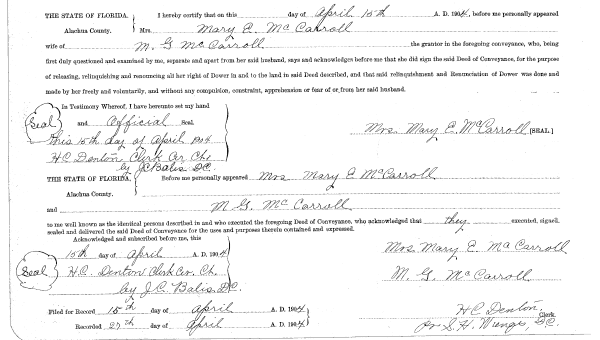 THE STATE OF FLORIDA. I hereby certify that on this day of April 15th A. D. 1904, before me personally appeared
Alachua County. Mrs. Mary E. McCarroll
wife of M. G. McCarroll the grantor in the foregoing conveyance, who, being
first duly questioned and examined by me, separate and apart from her said husband, says and acknowledges before me that she did sign the said Deed of Conveyance, for the purpose
of releasing, relinquishing and renouncing all her right of Dower in and to the land in said Deed described, and that said relinquishment and Renunciation of Dower was done and
made by her freely and voluntarily, and without any compulsion, constraint, apprehension or fear of or from her said husband.
In Testimony Whereof, I have hereunto set my hand
Seal and Official Seal
this 15th day of April 1904
H.C. Denton Clerk Cir. Ct.
by J.C. Balis D.C.
Mrs. Mary E. McCarroll [SEAL.]
THE STATE OF FLORIDA. Before me personally appeared Mrs Mary E McCarroll
Alachua County.
and M G McCarroll
to me well known as the identical persons described in and who executed the foregoing Deed of Conveyance, who acknowledged that they executed, signed,
sealed and delivered the said Deed of Conveyance for the uses and purposes therein contained and expressed.
Acknowledged and subscribed before me, this
15th day of April A. D. 1904
Seal H.C. Denton Clerk Cir. Ct.
by J.C. Balis D.C.
Mrs. Mary E. McCarroll
M. G. McCarroll
Filed for Record 15th day of April A. D. 1904
Recorded 27th day of April A. D. 1904
H C Denton, Clerk.
Per S. H. D.C.